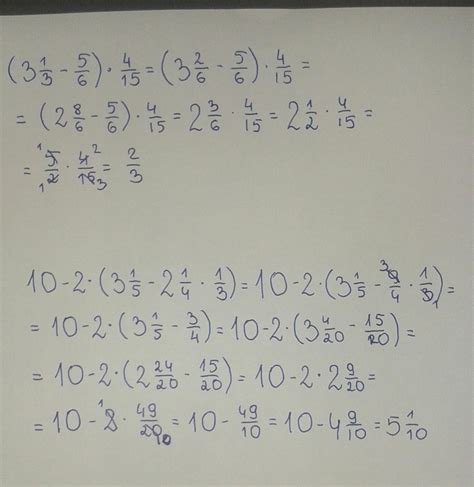 (3 1/3 - 5/6) · 4/15 = (3 2/6 - 5/6) · 4/15 =
= (2 8/6 - 5/6) · 4/15 = 2 3/6 · 4/15 = 2 1/2 · 4/15 =
= ¹5/2₁ · 4²/15₃ = 2/3
10 - 2 · (3 1/5 - 2 1/4 · 1/3) = 10 - 2 · (3 1/5 - ³9/4 · 1/3₁) =
= 10 - 2 · (3 1/5 - 3/4) = 10 - 2 · (3 4/20 - 15/20) =
= 10 - 2 · (2 24/20 - 15/20) = 10 - 2 · 2 9/20 =
= 10 - ¹2 · 49/20₁₀ = 10 - 49/10 = 10 - 4 9/10 = 5 1/10